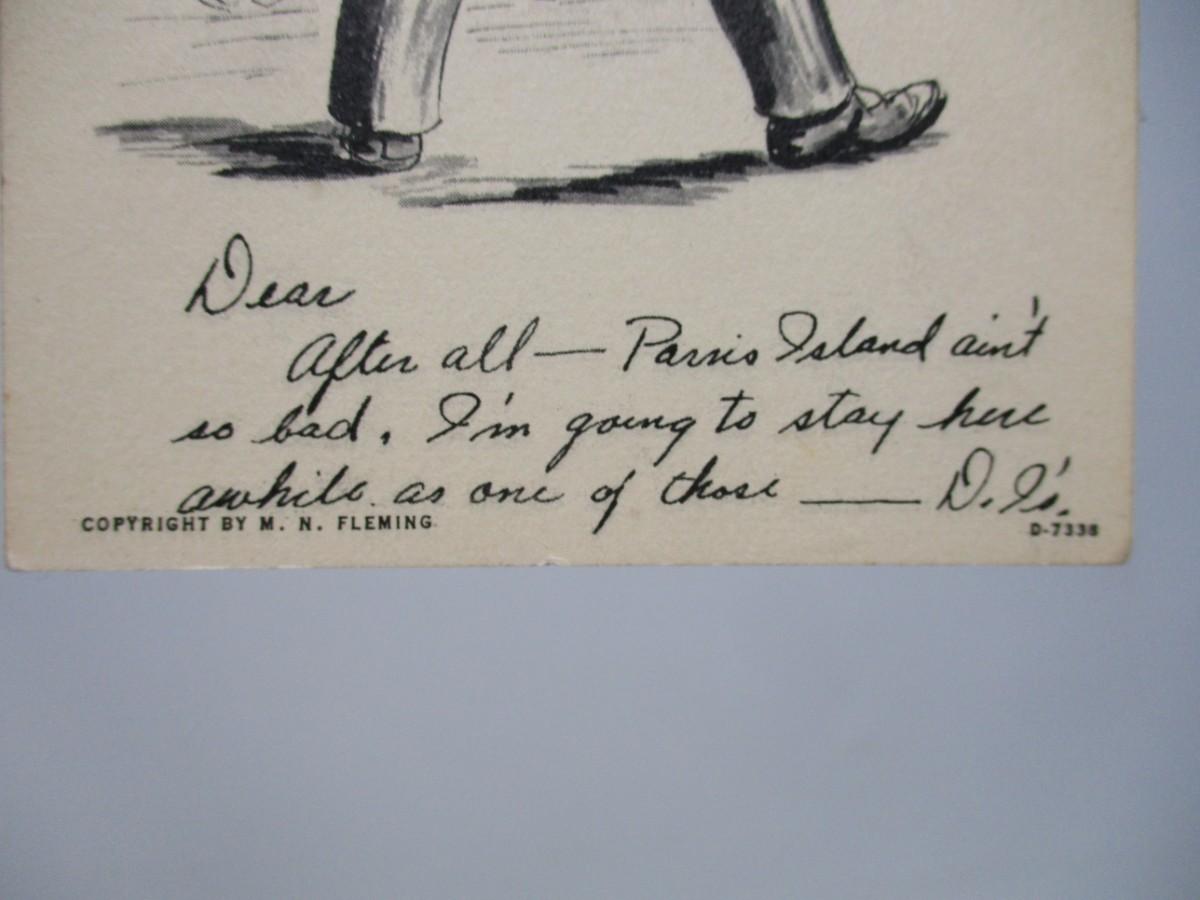 Dear
After all — Parris Island ain't
so bad. I'm going to stay here
awhile as one of those ____ D. I's.
COPYRIGHT BY M. N. FLEMING
D-7338